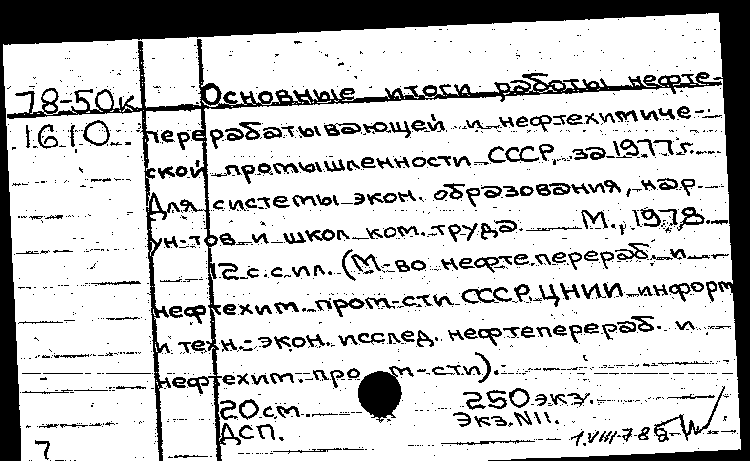 78-50к Основные итоги работы нефте-
1610 перерабатывающей и нефтехимиче-
ской промышленности СССР за 1977 г.
Для системы экон. образования, нар.
ун-тов и школ ком. труда. М., 1978.
12 с. с ил. (М-во нефтеперераб. и
нефтехим. пром-сти СССР. ЦНИИ информ.
и техн.-экон. исслед. нефтеперераб. и
нефтехим. про м-сти).
20 см. 250 экз.
ДСП. Экз. N11.
7